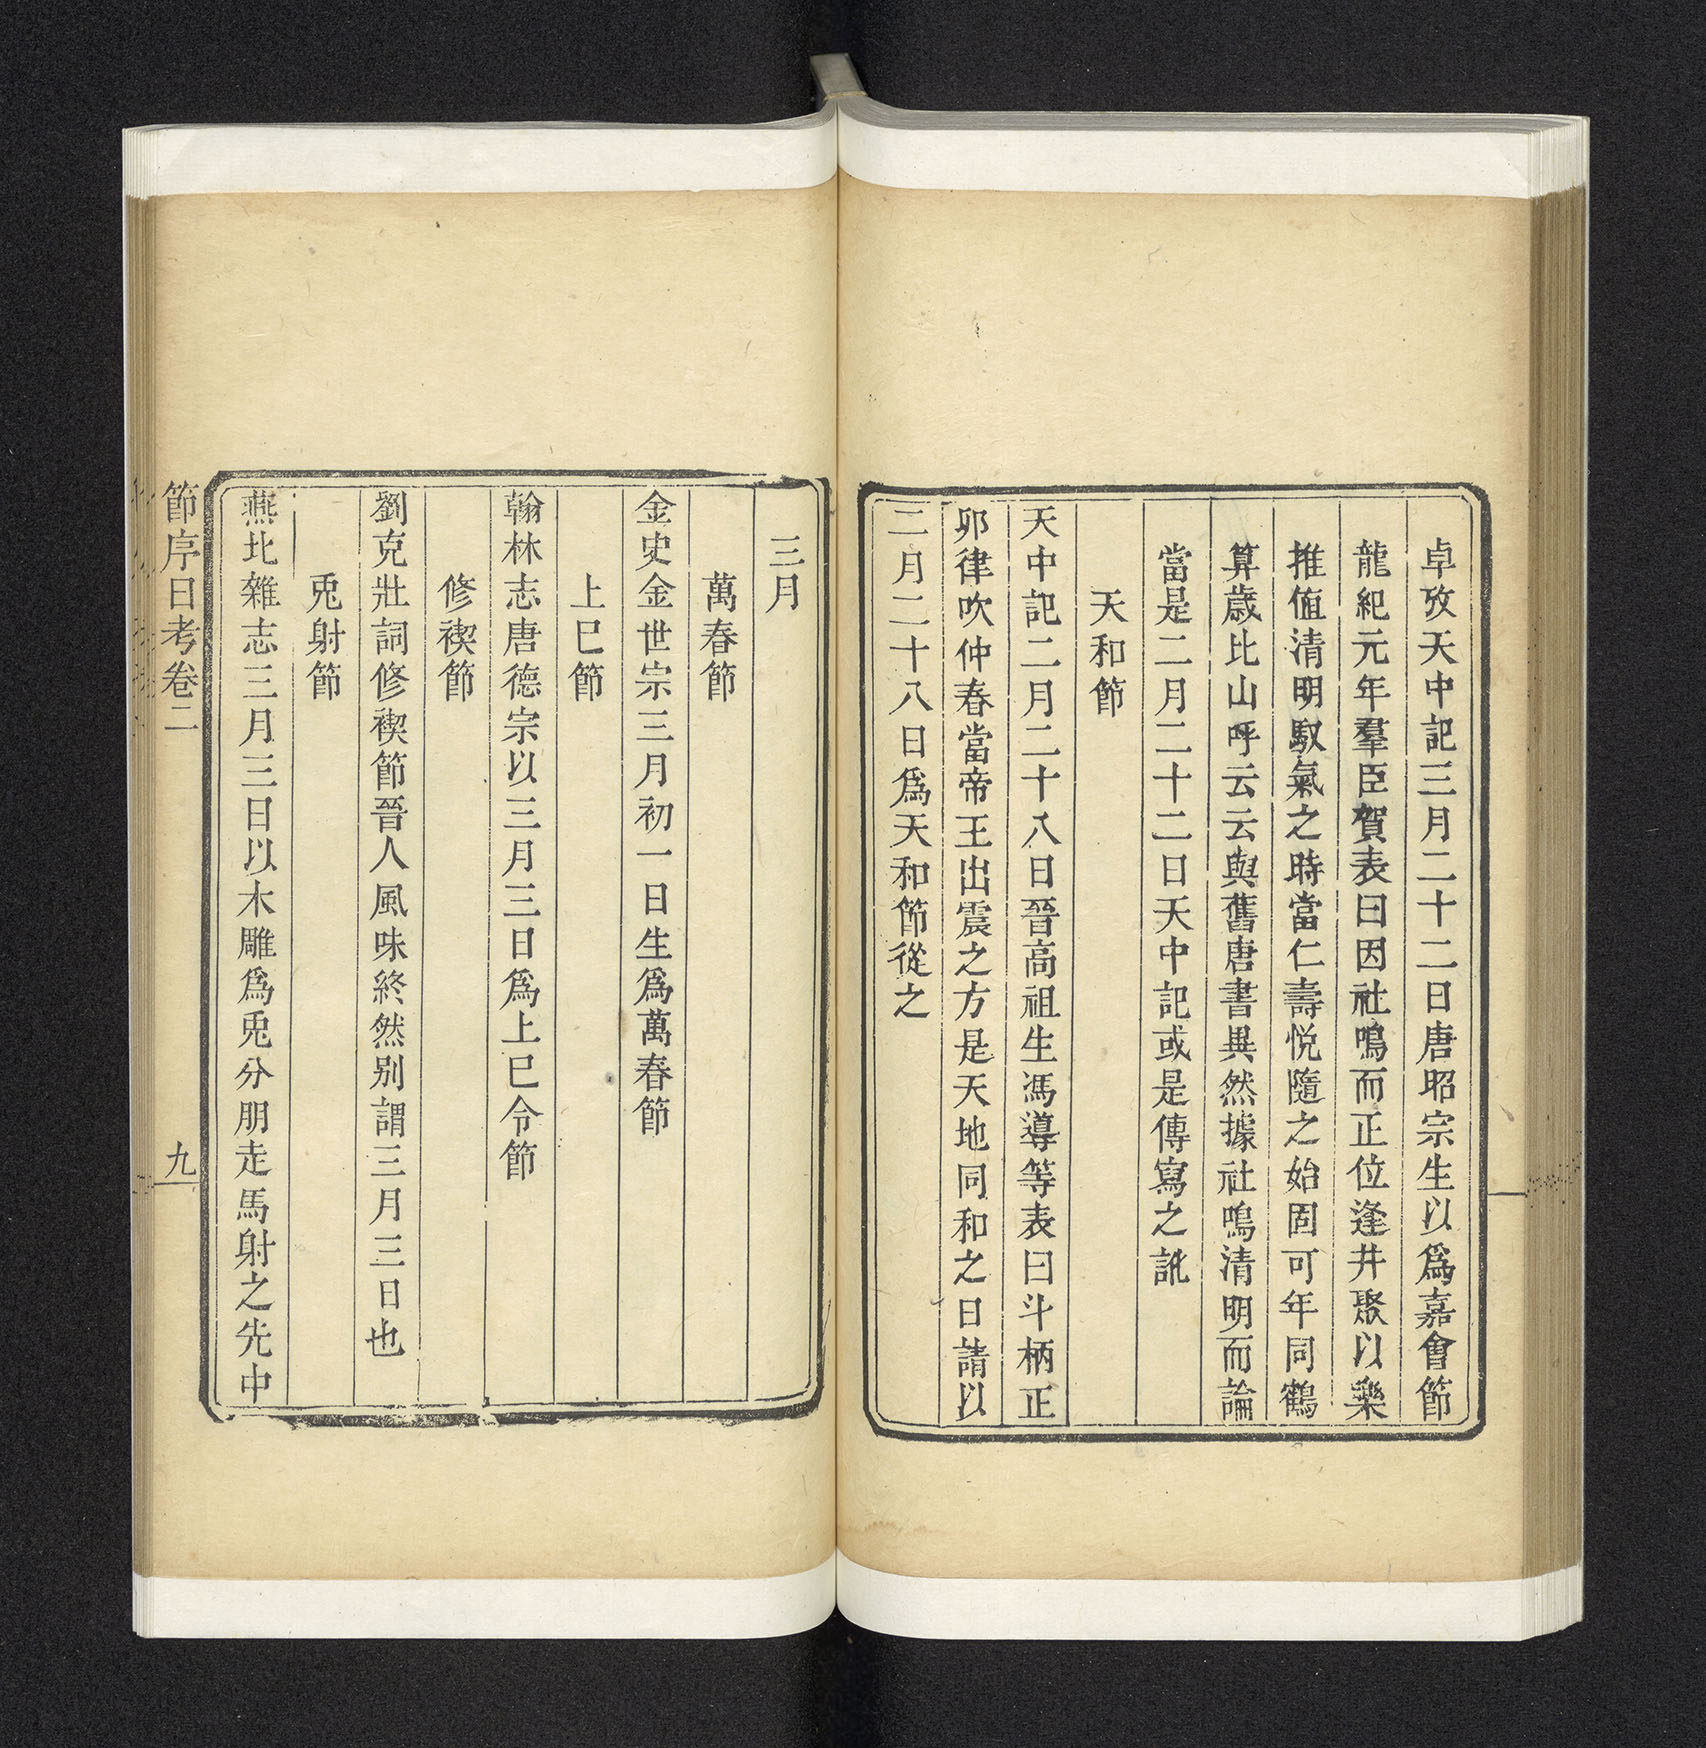 卓攷天中記三月二十二日唐昭宗生以爲嘉會節
龍紀元年羣臣賀表曰因社鳴而正位逢井聚以樂
推値清明馭氣之時當仁壽悅隨之始固可年同鶴
算歲比山呼云云與舊唐書異然據社鳴清明而論
當是二月二十二日天中記或是傳寫之訛
天和節
天中記二月二十八日晉高祖生馮導等表曰斗柄正
卯律吹仲春當帝王出震之方是天地同和之日請以
二月二十八日爲天和節從之
三月
萬春節
金史金世宗三月初一日生爲萬春節
上巳節
翰林志唐德宗以三月三日爲上巳令節
修禊節
劉克壯詞修禊節晉人風味終然别謂三月三日也
兎射節
燕北雜志三月三日以木雕爲兎分朋走馬射之先中
節序日考卷二
九